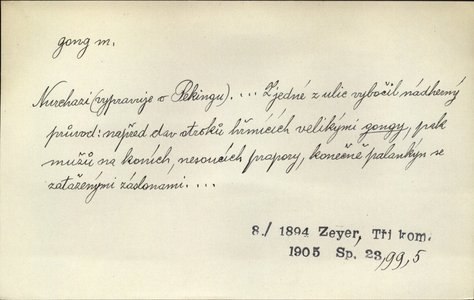 gong m.
Nurchazi (vypravuje o Pekingu). ... Z jedné z ulic vybočil nádherný
průvod: nejřed dav otroků hřmících velikými gongy, pak
mužů na koních, nesoucích prapory, konečně palankýn se
zataženými záslonami. ...
8./ 1894 Zeyer, Tři kom.
1905 Sp. 23, 99, 5